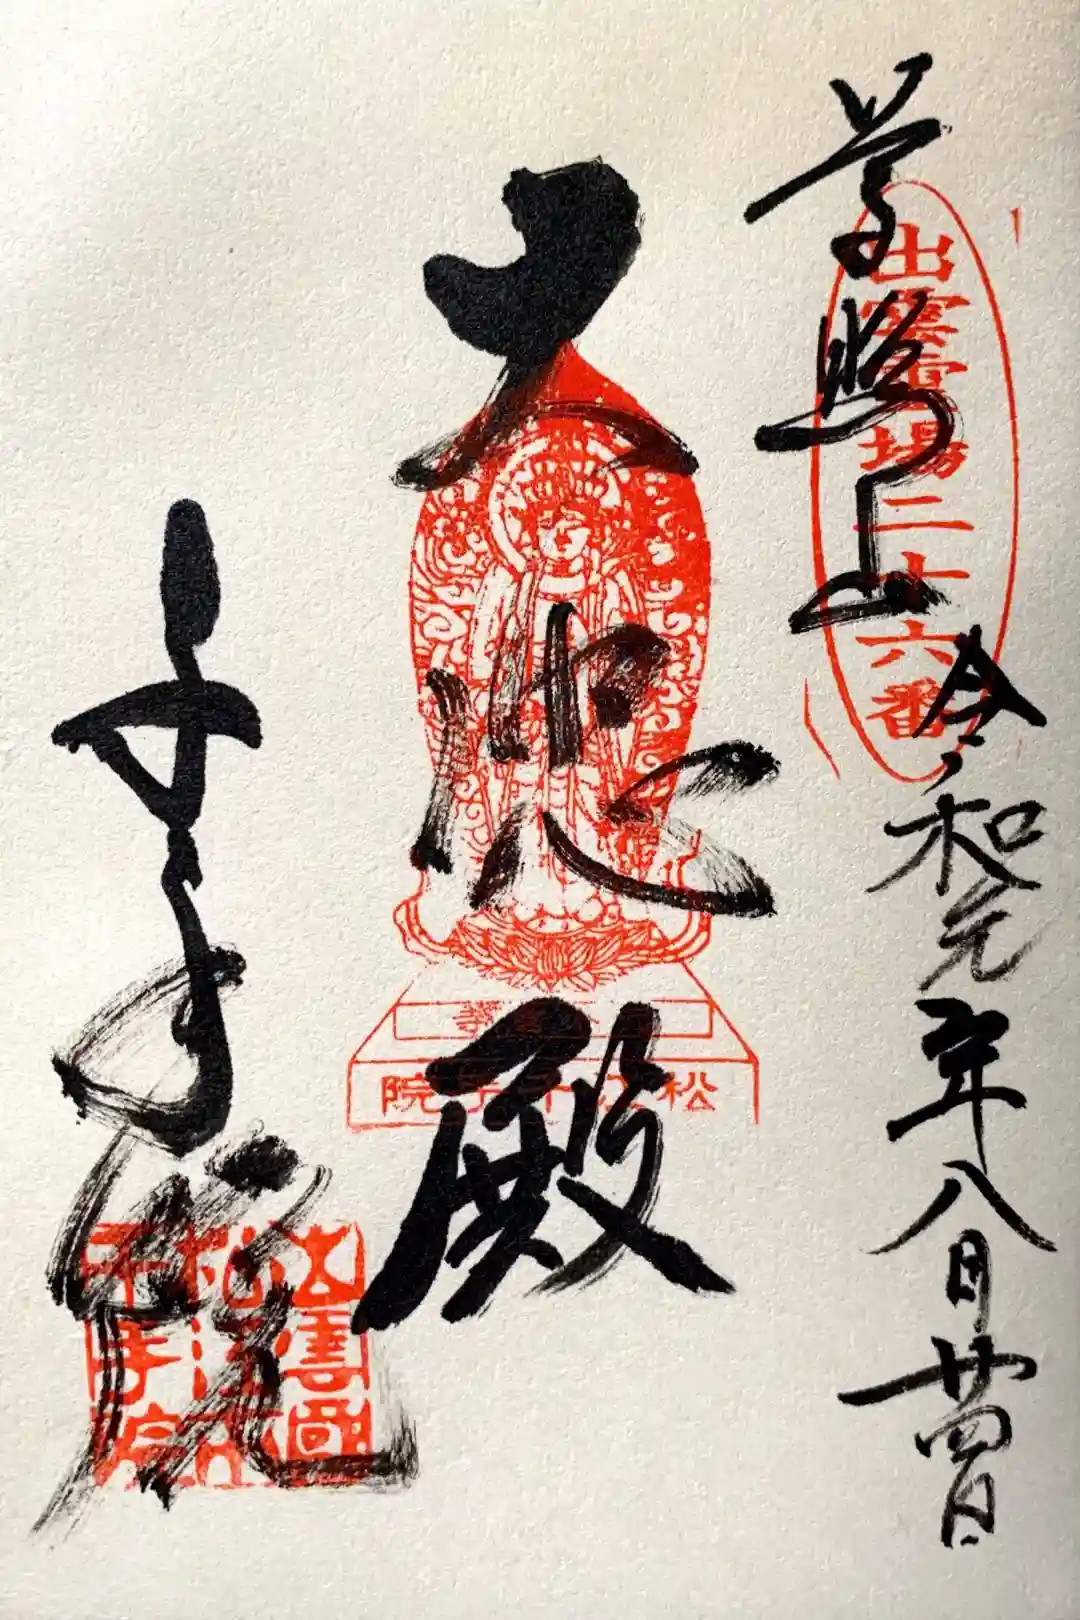 尊照山
出雲霊場二十六番
令和元年八月廿四日
大悲殿
松江千手院
千手院
出雲國
松江
千手院